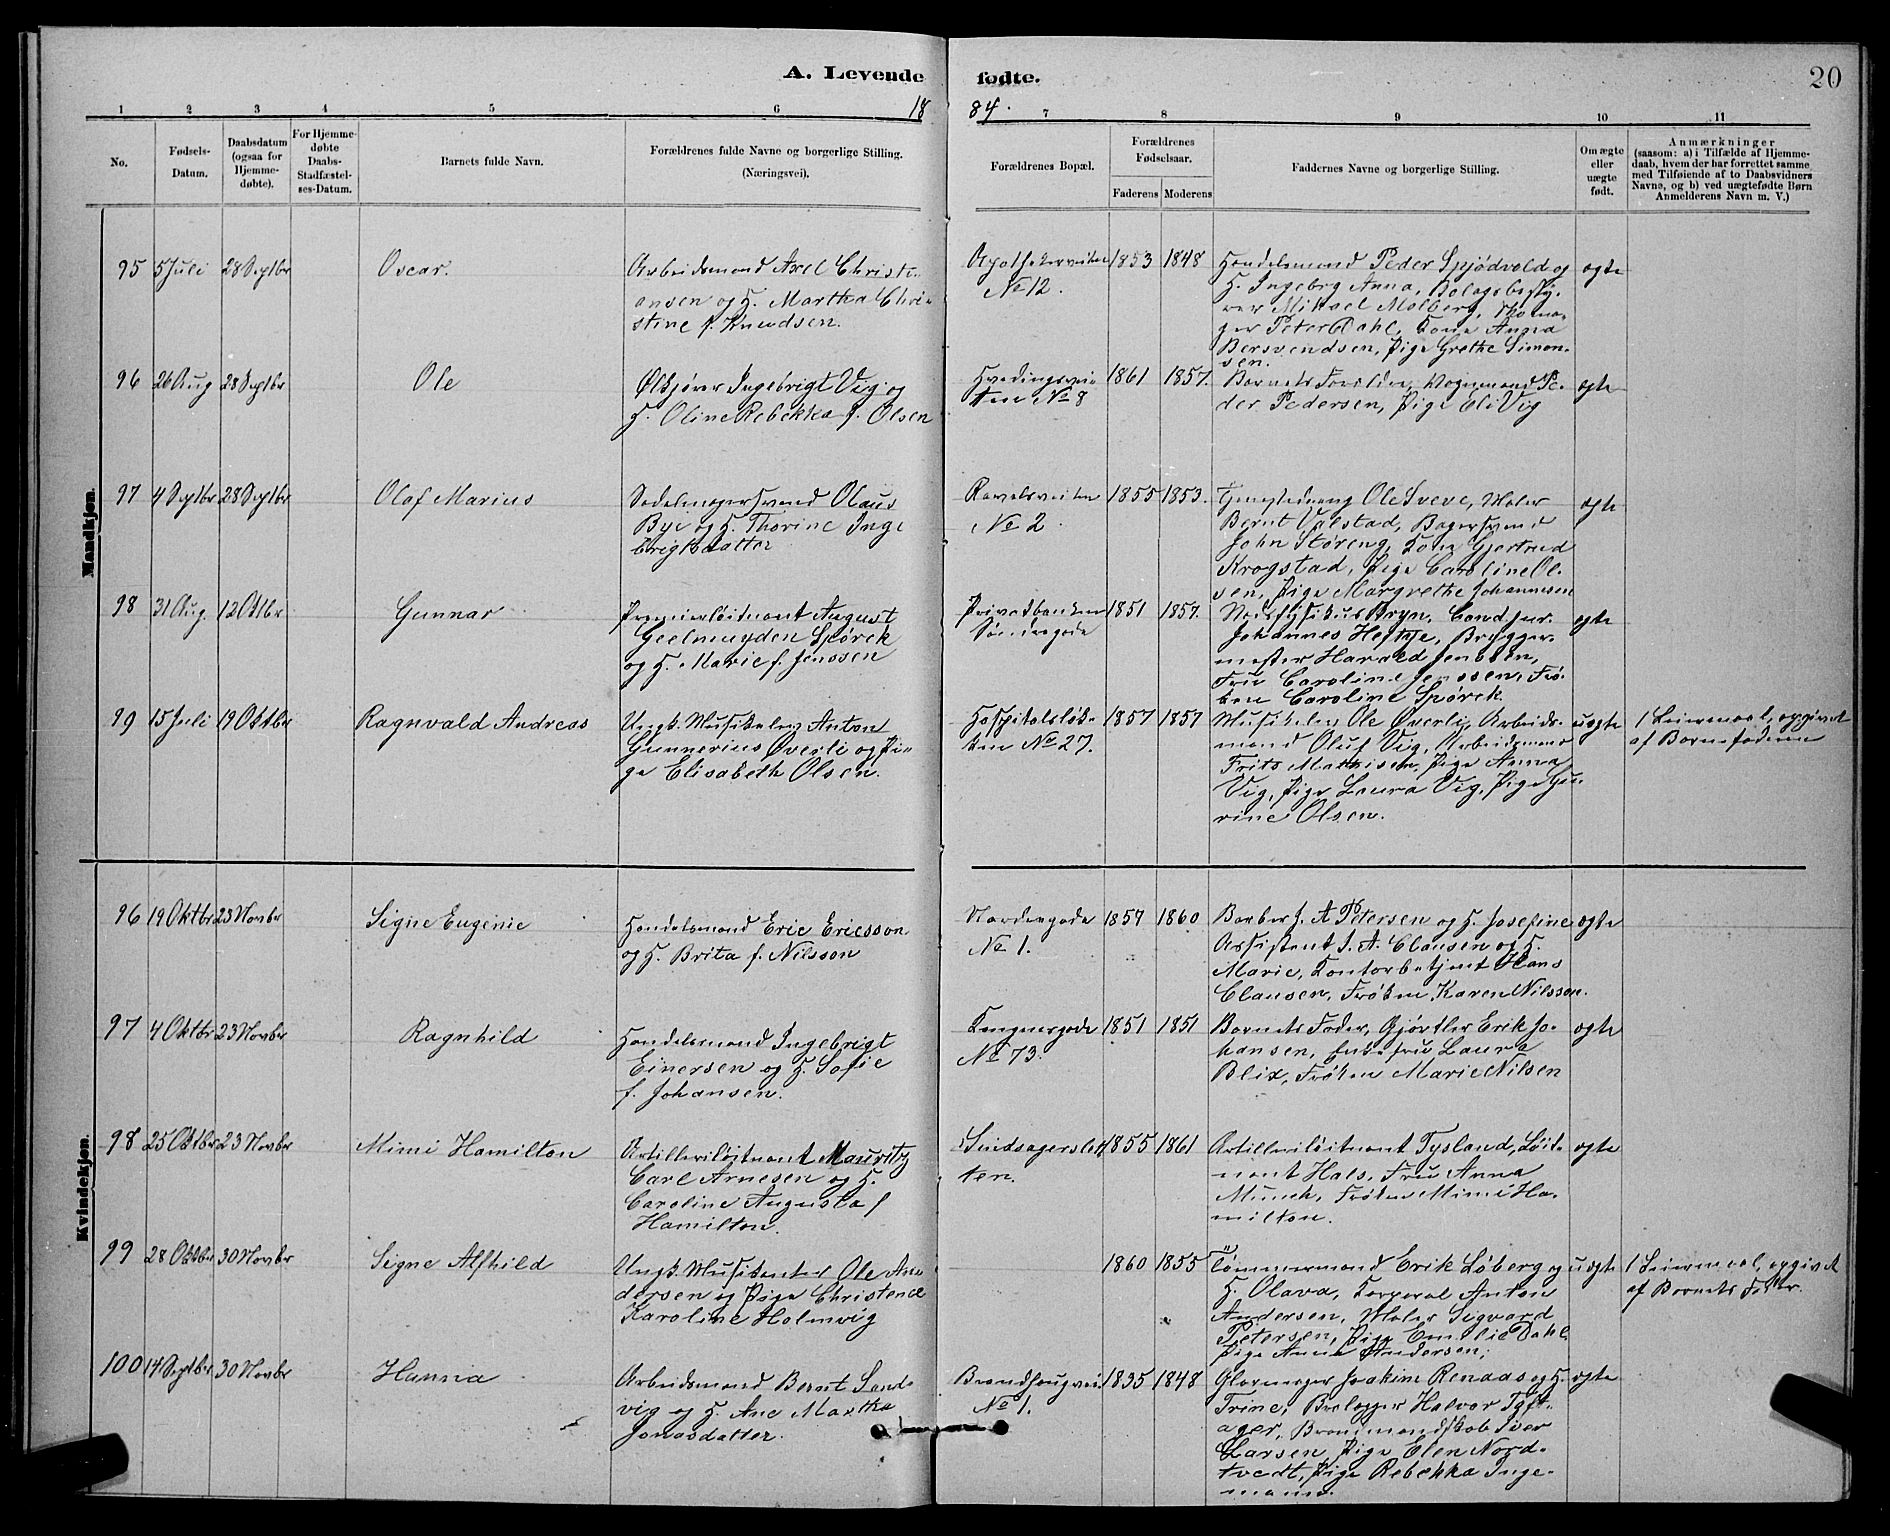 A. Levende fødte.
20
1884.
1 2 3 4 5 6 7 8 9 10 11
No.
Fødsels-Datum.
Daabsdatum (ogsaa for Hjemme-døbte).
For Hjemme-døbte Daabs-Stadfæstel-ses-Datum.
Barnets fulde Navn.
Forældrenes fulde Navne og borgerlige Stilling.
(Næringsvei).
Forældrenes Bopæl.
Forældrenes Fødselsaar.
Faderens Moderens
Faddernes Navne og borgerlige Stilling.
Om ægte eller uægte født.
Anmærkninger
(saasom: a) i Tilfælde af Hjemme-
daab, hvem der har forrettet samme
med Tilføiende af to Daabsvidners
Navne, og b) ved uægtefødte Børn
Anmelderens Navn m. V.)
Mandkjøn.
95 5 Juli 28 Septbr Oscar.
Arbeidsmand Axel Christi-
ansen og H. Martha Chri-
stine f. Knudsen.
Apothekerveiten
No 12.
1853 1848
Handelsmand Peder Spjødvold og
H. Ingebrg Anna, Bolagsbesty-
rer Mikael Molberg,
Peter Dahl, Kone Anna
Bersvendsen, Pige Grethe Simon-
sen.
ægte
96 26 Aug 28 Septbr Ole
Ølkjører Ingebrigt Vig og
H. Oline Rebekka f. Olsen
Hvedingsvei-
ten No 8
1861 1857.
Barnets Forældre, Vognmand Pe-
der Pedersen, Pige Eli Vig
ægte
97 4 Septbr 28 Septbr Olaf Marius
Sadelmagersvend Olaus
Bye og H. Thorine Inge
brigtsdatter
Ravelsveiten
No 2.
1855 1853.
Ole Sveve, Maler
Bernt Valstad, Bagersvend
John Støreng, Kone Gjertrud
Krogstad, Pige Caroline Ol-
sen, Pige Margrethe Johannesen
ægte
98 31 Aug. 12 Oktbr Gunnar
Premierløitnant August
Geelmuyden Spørck
og H. Marie f. Jenssen
Privatbanken
Søndregade
1851 1857.
Stadsfysikus Bryn, Cand. jur.
Johannes Heftye, Brygger-
mester Harald Jenssen,
Fru Caroline Jenssen, Frø-
ken Caroline Spørck.
ægte
99 15 Juli 19 Oktbr Ragnvald Andreas
Ungk. Musikelev Anton
Gunnerius Øverli og Pi-
ge Elisabeth Olsen.
Hospitalsløk-
ken No 27.
1857 1857
Musikelev Ole Øverli, Arbeids-
mand Oluf Vig, Arbeidsmand
Frits Mathisen, Pige Anna
Vig, Pige Laura Vig, Pige
rine Olsen.
uægte
1 Leiermaal, opgivet
af Barnefaderen
Kvindekjøn.
96 19 Oktbr 23 Novbr Signe Eugenie
Handelsmand Eric Ericsson
og H. Brita f. Nilsson
Nordregade
No 1.
1857 1860
Barber J. A Petersen og H. Josefine
Assistent J. A. Clausen og H.
Marie, Kontorbetjent Hans
Clausen, Frøken Karen Nilsson.
ægte
97 4 Oktbr 23 Novbr Ragnhild
Handelsmand Ingebrigt
Einersen og H. Sofie
f. Johansen.
Kongensgade
No 73.
1851 1851
Barnets Fader, Gjørtler Erik Jo-
hansen, Enkefru Laura
Blix, Frøken Marie Nilsen
ægte
98 25 Oktbr 23 Novbr Mimi Hamilton
Artilleriløitnant Mauritz
Carl Arnesen og H.
Caroline Augusta f
Hamilton.
Sindsagerslet
ten.
1855 1861
Artilleriløitnant Tysland, Løit-
nant Hals, Fru Anna
Munch, Frøken Mimi Ha-
milton.
ægte
99 28 Oktbr 30 Novbr Signe Alfhild
Ungk. Musikanter Ole An-
dersen og Pige Christence
Karoline Holmvig
1860 1855
Tømmermand Erik Løberg og
H. Olava, Korporal Anton
Andersen, Maler Sigvard
Petersen, Pige Emelie Dahl,
Pige Anna Andersen;
uægte
1 Leiermaal, opgivet
af Barnets Fader.
100 14 Septbr 30 Novbr Hanna
Arbeidsmand Bernt Sand-
vig og H. Ane Martha
Jonasdatter.
Brandhaugvei.
No 1.
1835 1848
Glarmager Joakim Renaas og H.
Trine, Brolægger Halvor
ager, Iver
Larsen, Pige Elen Nord-
tvedt, Pige Rebekka Inge-
mann.
ægte